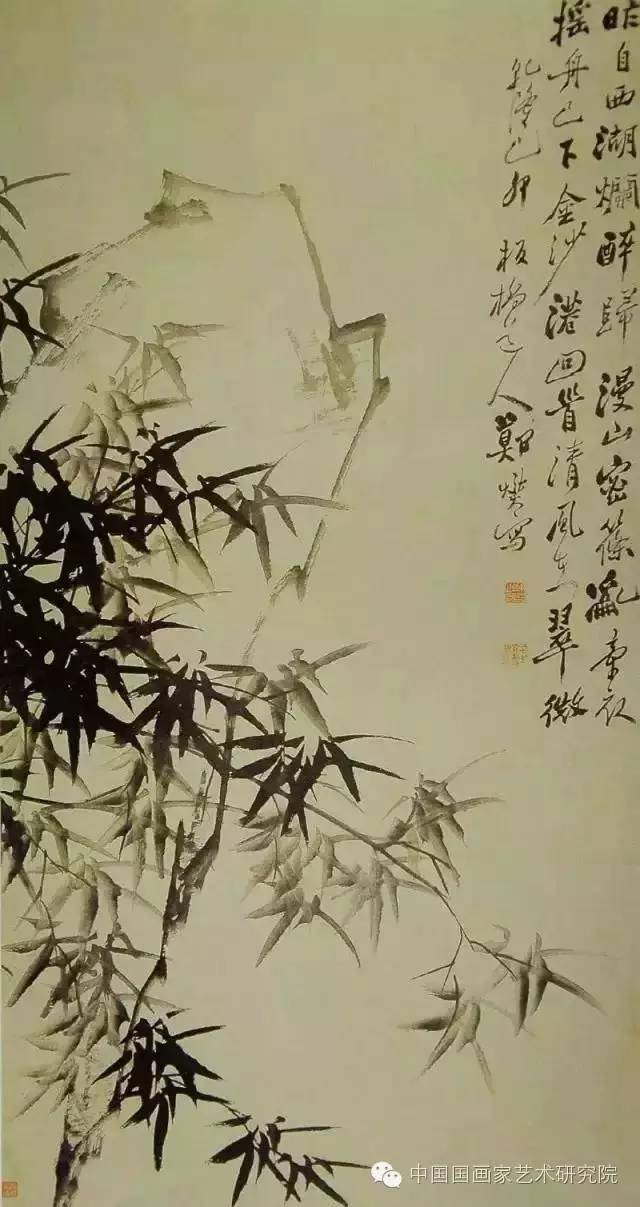 昨自西湖爛醉歸漫山密篠亂牽衣
搖舟已下金沙港回首清風在翠微
乾隆己卯板橋道人鄭燮寫
中国国画家艺术研究院